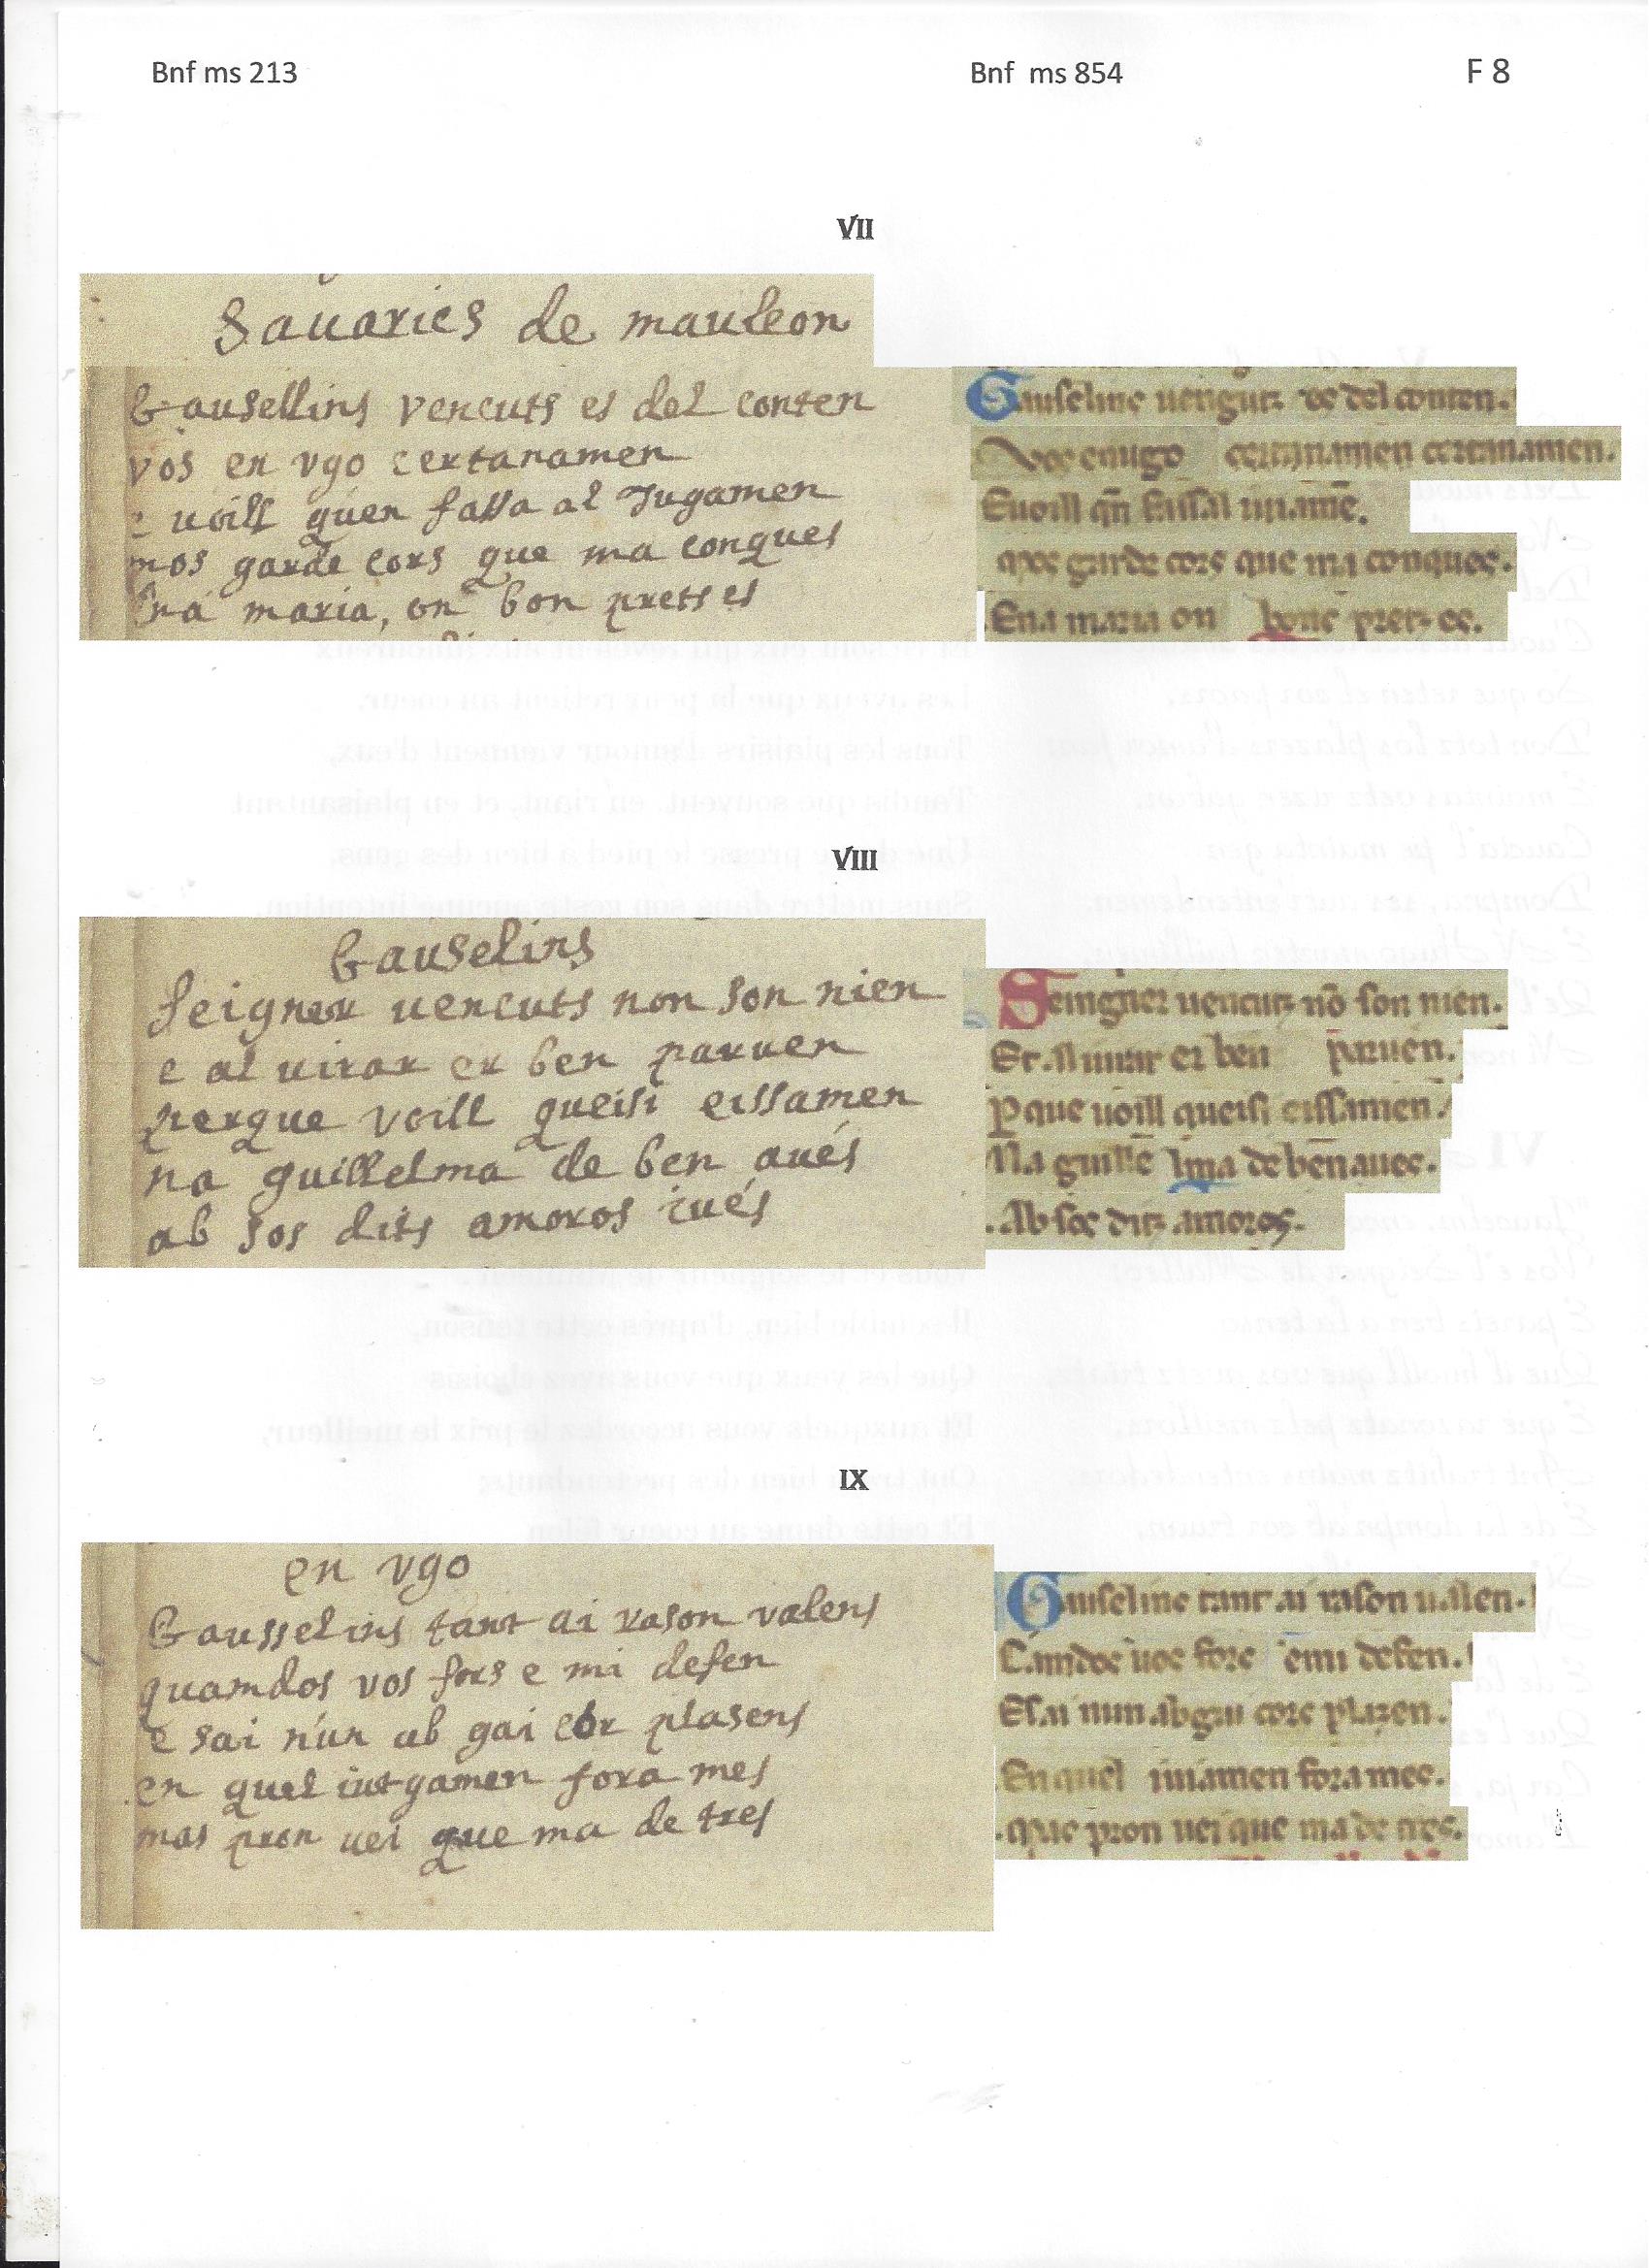 Bnf ms 213
Bnf ms 854
F 8
VII
Sauaries de mauleon
Gausellins vencuts es del conten
vos en vgo certanamen
e uoill quen fassa al Jugamen
mos garde cors que ma conques
Na maria, on bon prets es
Gauseline uengutz es del conten.
Vos enugo certanamen certanamen.
E uoill qn̄ fassal iuiamē.
Mos garde cors que ma conques.
Ena maria on bone pretz es.
VIII
Gauselins
Seigner uencuts non son nien
e al uirar er ben paruen
perque voill queisi eissamen
na guillelma de ben aués
ab sos dits amoros iués
Seingner uencutz nō son nien.
Et al uirar er ben paruen.
Per que uoill queisi eissamen.
Na guillē lma de benaues.
Ab sos ditz amoros.
IX
en vgo
Gausselins tant ai rason valens
quamdos vos fors e mi defen
e sai n'un ab gai cor plasens
en quel iutgamen fora mes
mas pron uei que ma de tres
Gauseline tant ai rason ualen.
Camdos uos fors emi defen.
E sai nun ab gai cors plazen.
En quel iuiamen fora mes.
Mas pron uei que ma de tres.